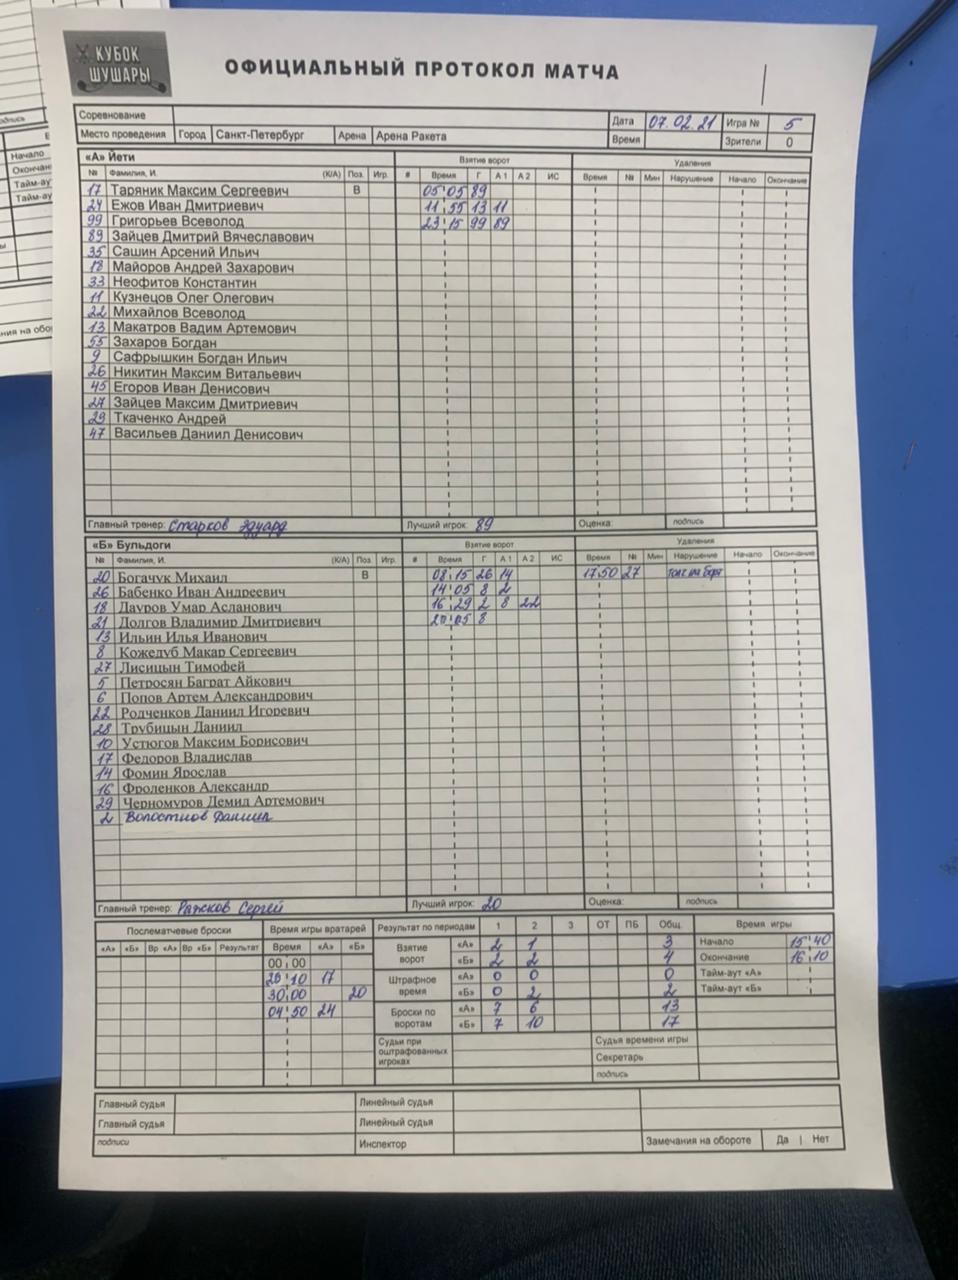 КУБОК
ШУШАРЫ
ОФИЦИАЛЬНЫЙ ПРОТОКОЛ МАТЧА
Соревнование Дата 07.02.21 Игра № 5
Место проведения Город Санкт-Петербург Арена Арена Ракета Время Зрители 0
«А» Йети Взятие ворот Удаления
№ Фамилия, И. (К/А) Поз. Игр. # Время Г А 1 А 2 ИС Время № Мин Нарушение Начало Окончание
17 Таряник Максим Сергеевич В 05 05 89
24 Ежов Иван Дмитриевич 11 55 13 11
99 Григорьев Всеволод 23 15 99 89
89 Зайцев Дмитрий Вячеславович
35 Сашин Арсений Ильич
18 Майоров Андрей Захарович
33 Неофитов Константин
11 Кузнецов Олег Олегович
22 Михайлов Всеволод
13 Макатров Вадим Артемович
55 Захаров Богдан
9 Сафрышкин Богдан Ильич
26 Никитин Максим Витальевич
45 Егоров Иван Денисович
27 Зайцев Максим Дмитриевич
29 Ткаченко Андрей
47 Васильев Даниил Денисович
Главный тренер: Старков Эдуард Лучший игрок: 89 Оценка: подпись
«Б» Бульдоги Взятие ворот Удаления
№ Фамилия, И. (К/А) Поз Игр. # Время Г А 1 А 2 ИС Время № Мин Нарушение Начало Окончание
20 Богачук Михаил В 08 15 26 14 17 50 27 толч. на борт
26 Бабенко Иван Андреевич 14 05 8 2
18 Дауров Умар Асланович 16 29 2 8 22
21 Долгов Владимир Дмитриевич 20 05 8
13 Ильин Илья Иванович
8 Кожедуб Макар Сергеевич
27 Лисицын Тимофей
5 Петросян Баграт Айкович
6 Попов Артем Александрович
22 Родченков Даниил Игоревич
28 Трубицын Даниил
10 Устюгов Максим Борисович
17 Федоров Владислав
14 Фомин Ярослав
16 Фроленков Александр
29 Черномуров Демид Артемович
2 Волостнов Даниил
Главный тренер: Ражков Сергей Лучший игрок: 20 Оценка: подпись
Послематчевые броски Время игры вратарей Результат по периодам 1 2 3 ОТ ПБ Общ. Время игры
«А» «Б» Вр «А» Вр «Б» Результат Время «А» «Б» Взятие ворот «А» 2 1 3 Начало 15 40
00 00 «Б» 2 2 4 Окончание 16 10
20 10 17 Штрафное время «А» 0 0 0 Тайм-аут «А»
30 00 20 «Б» 0 2 2 Тайм-аут «Б»
04 50 24 Броски по воротам «А» 7 6 13
«Б» 7 10 17
Судьи при оштрафованных игроках Судья времени игры
Секретарь
подпись
Главный судья Линейный судья
Главный судья Линейный судья
подписи Инспектор Замечания на обороте Да | Нет